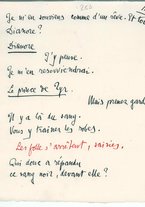 Je m'en souviens comme d'un rêve. Et toi
Dianore?
Dianore
J'y pense.
Je m'en ressouviendrai.
Le prince de Tyr
Mais prenez gard
Il y a là du sang.
Vous y traînez les robes.
Les folles s'arrêtent, saisies,
Qui donc a répandu
ce sang noir, devant elle?